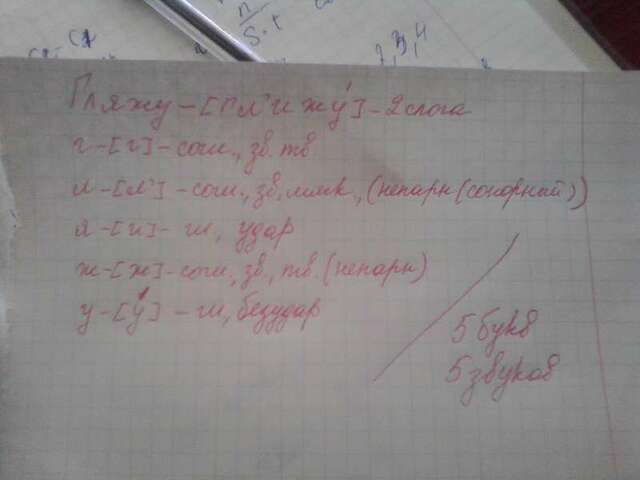 n
S·t
Гляжу – [гл'ижу́] – 2 слога
г – [г] – согл., зв. тв
л – [л'] – согл., зв, мягк., (непарн (сонорный))
я – [и] – гл, удар
ж – [ж] – согл, зв, тв. (непарн)
у – [у́] – гл, безудар
5 букв
5 звуков